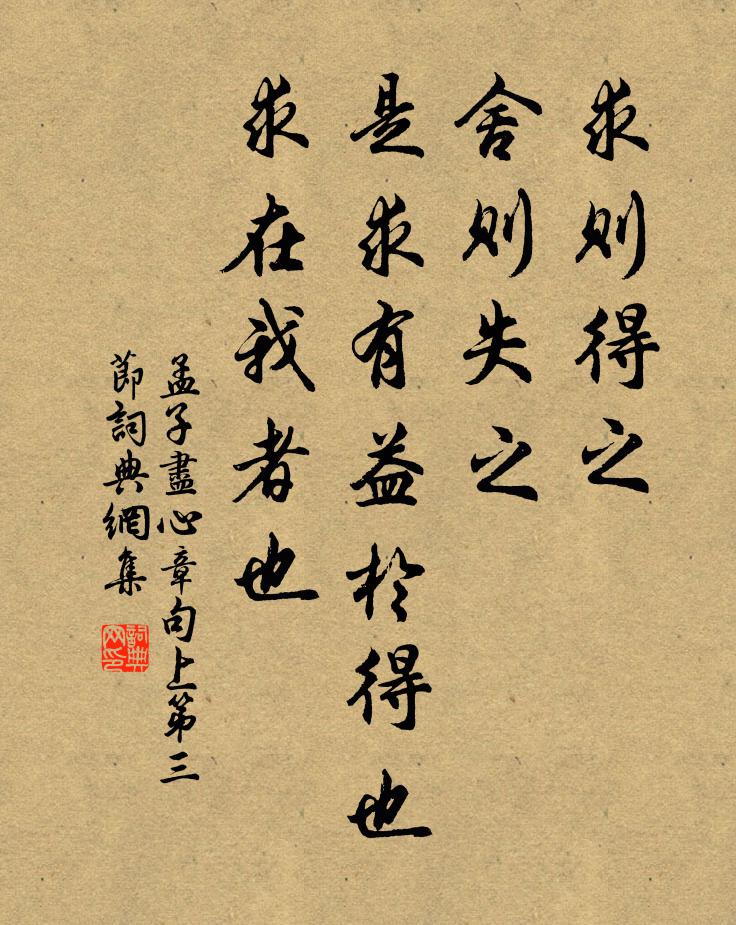 求則得之
舍則失之
是求有益於得也
求在我者也
孟子盡心章句上第三
節詞典網集
詞典
网印